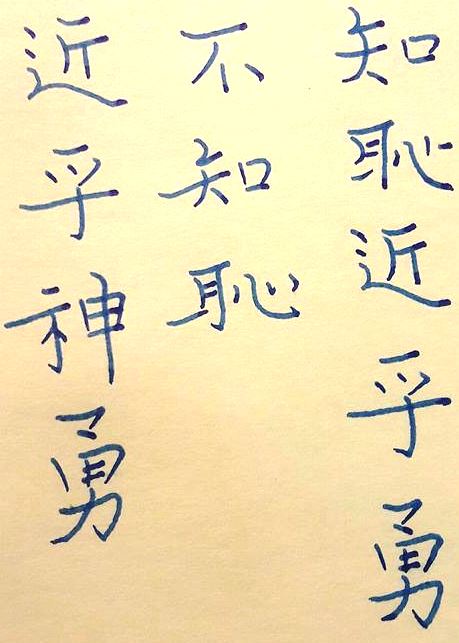 知恥近乎勇
不知恥
近乎神勇